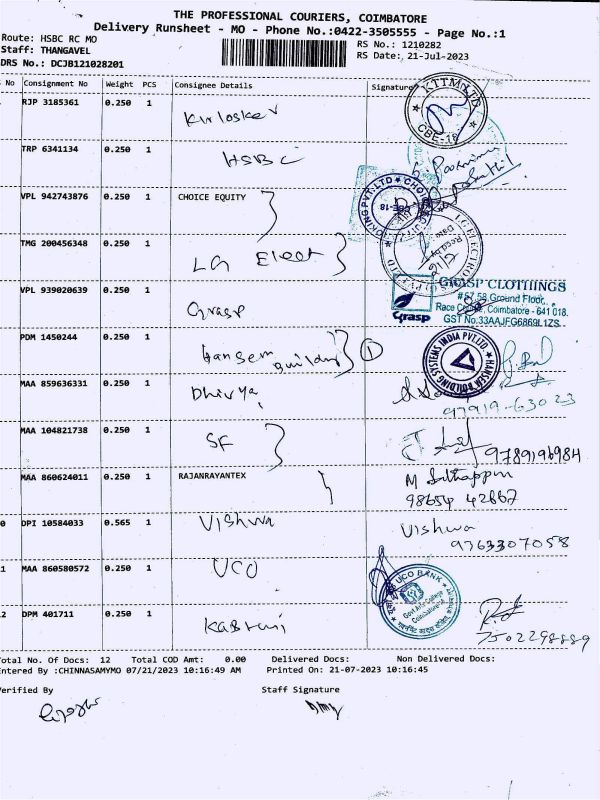 THE PROFESSIONAL COURIERS, COIMBATORE
Delivery Runsheet - MO - Phone No.:0422-3505555 - Page No.:1
Route: HSBC RC MO
Staff: THANGAVEL
DRS No.: DCJB121028201
RS No.: 1210282
RS Date:, 21-Jul-2023
No Consignment No Weight PCS Consignee Details Signature
RJP 3185361 0.250 1 Kirloskar
KTTM CBE-18
TRP 6341134 0.250 1 HSBC
VPL 942743876 0.250 1 CHOICE EQUITY
CBE-18
TMG 200456348 0.250 1 LG Elect
VPL 939020639 0.250 1 Grasp
Grasp
GRASP CLOTHINGS
#57,58,Ground Floor,
Race Course, Coimbatore - 641 018.
GST No.33AAJFG6869L1ZS
PDM 1450244 0.250 1 Hansem building 1
HANSEM BUILDING SYSTEMS INDIA PVT.LTD
MAA 859636331 0.250 1 Dhivya,
97919-63023
MAA 104821738 0.250 1 SF
9789196984
MAA 860624011 0.250 1 RAJANRAYANTEX
98654 42867
0 DPI 10584033 0.565 1 Vishwa Vishwa
9763307058
1 MAA 860580572 0.250 1 UCO
UCO BANK
Govt Arts College
Coimbatore
2 DPM 401711 0.250 1
7502298889
otal No. Of Docs: 12 Total COD Amt: 0.00 Delivered Docs: Non Delivered Docs:
ntered By :CHINNASAMYMO 07/21/2023 10:16:49 AM Printed On: 21-07-2023 10:16:45
erified By Staff Signature